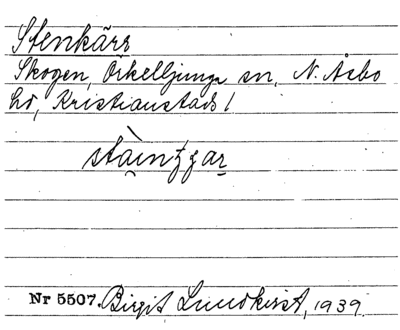 Stenkärr
Skogen, Örkelljunga sn, N. Åsbo
hd, Kristianstads l
Nr 5507. Birgit Lundkvist, 1939.